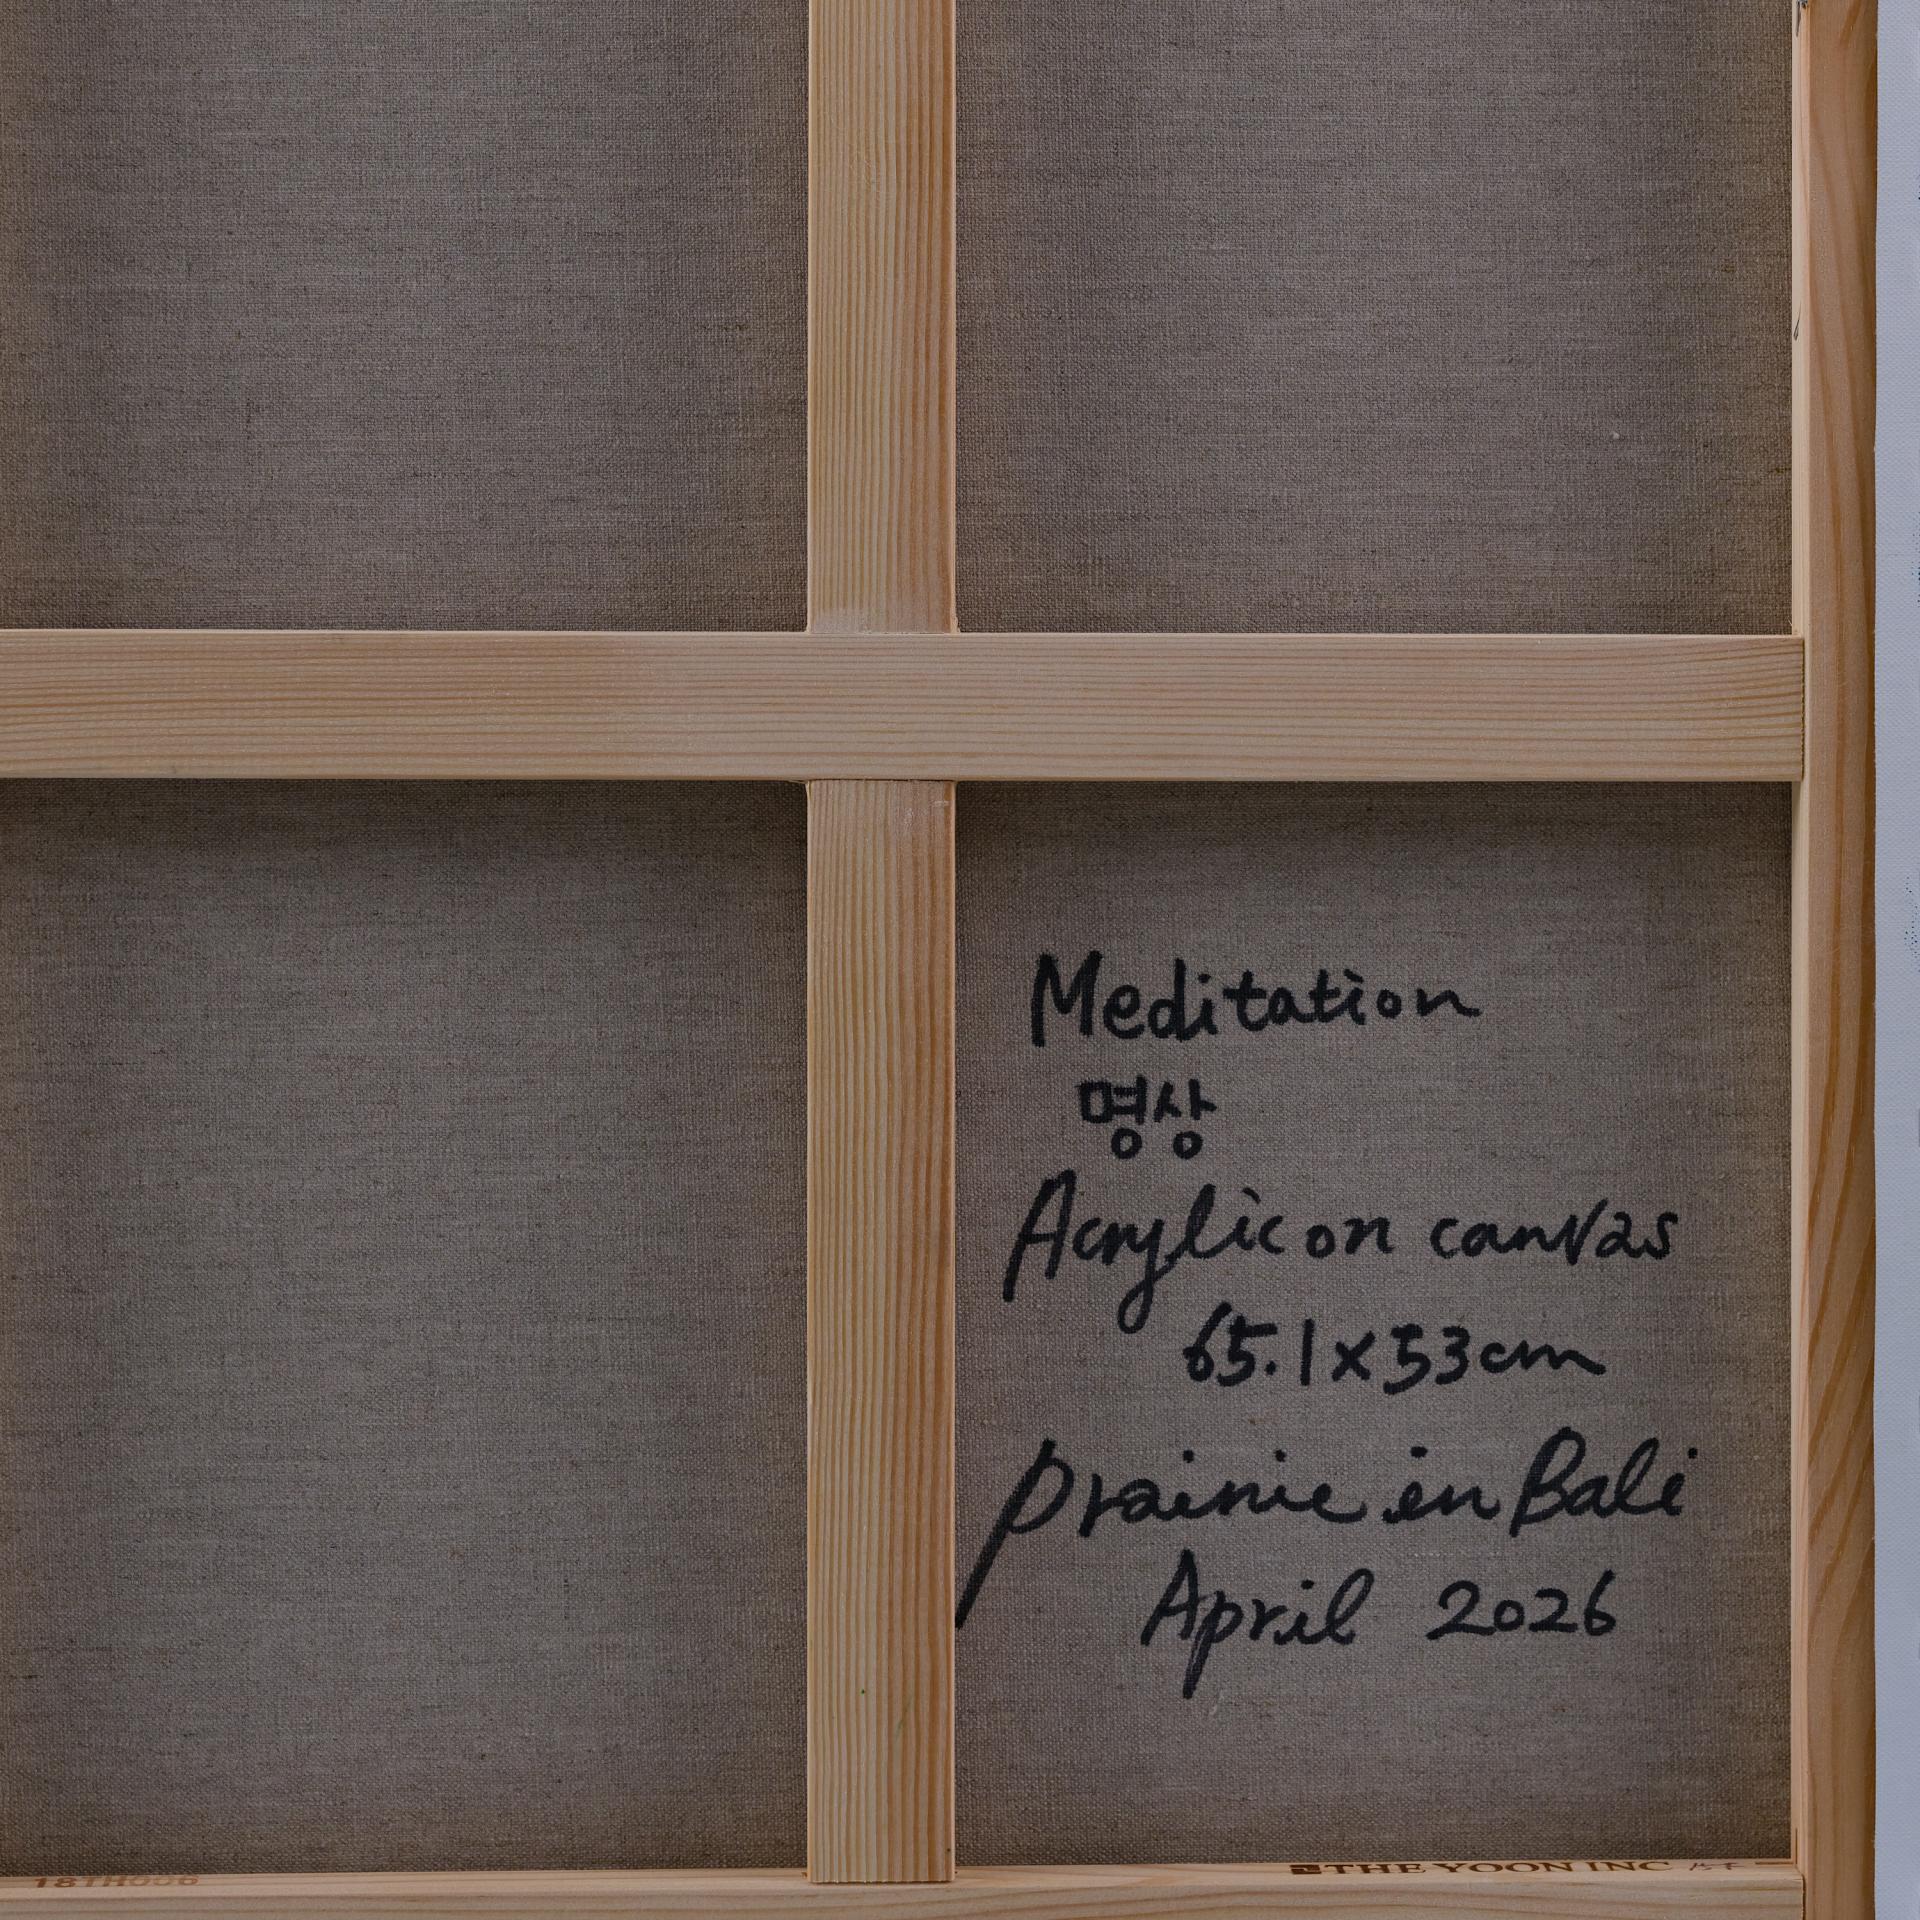 Meditation
명상
Acrylic on canvas
65.1x53cm
prairie in Bali
April 2026
18TH006
THE YOON INC